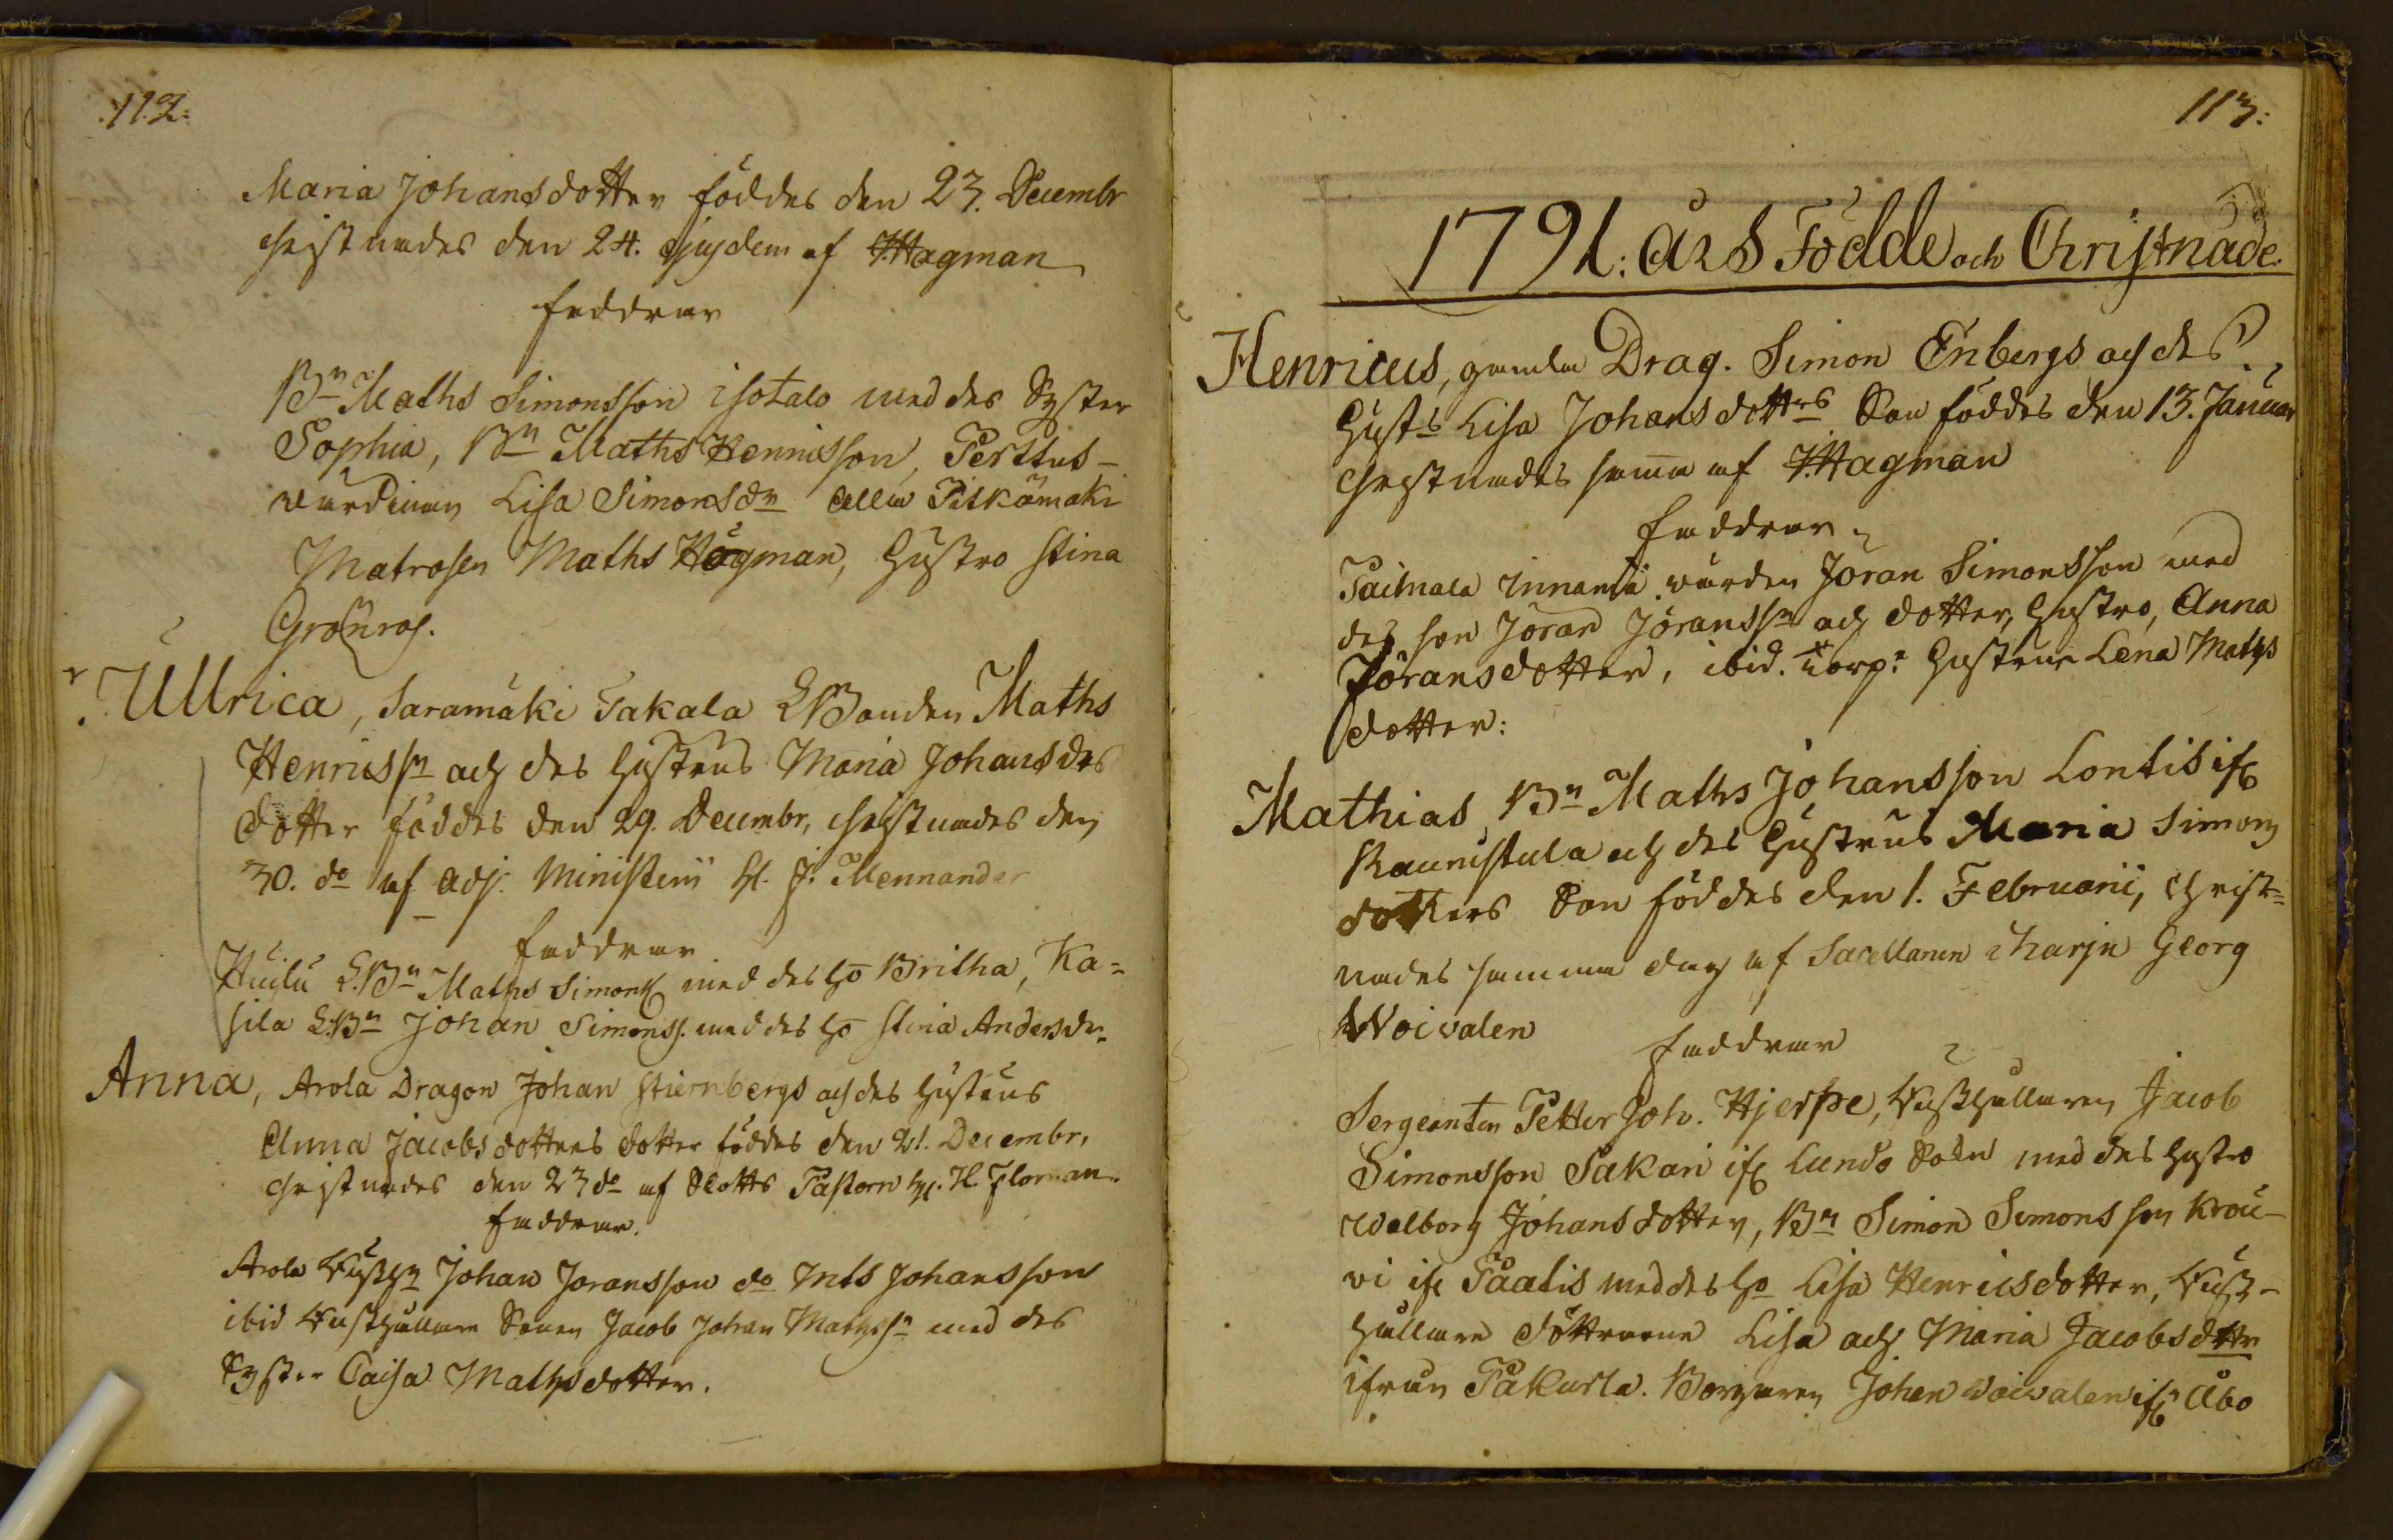 112.
Maria Johansdotter föddes den 23. Decembr
christnades den 24. ejusdem af J. Hagman
faddrar
Bn Maths Simonsson isotalo med des Syster
Sophia, Bn Maths Henricsson, Perttus-
värdinnan Lisa Simonsdr Alla Pitkämäki
Matrosen Maths Högman, Hustro Stina
Grönros.
Ullrica, Saramäki Takala LBonden Maths
Henricssn och des Hustrus Maria Johansdrs
dotter föddes den 29. Decembr, christnades den
30. do af adj. Ministerii H. J. Mennander
faddrar
Huilu L.Bn Maths Simonss med des ho Britha, Ka=
sila L.Bn Johan Simonss. med des ho Stina Andersdr.
Anna, Arola Dragon Johan Stiernbergs och des Hustrus
Anna Jacobsdotters dotter föddes den 21. Decembr,
christnades den 23 do af Slotts Pastorn H. H. Floman.
faddrar.
Arola Rusthn Johan Joransson do Mts Johansson
ibid Rusthållare Sonen Jacob Johan Mathssn med des
Syster Caisa Mathsdotter.
113:
1791: års Födde och Christnade.
Henricus, gamla Drag. Simon Enbergs och des
Hust:s Lisa Johansdottrs Son föddes den 13. Januar
christnades samma af J. Hagman
faddrar
Paimala Innamä värden Jöran Simonsson med
des son Jöran Joranssn och dotter, Hustro, Anna
Joransdotter, ibid. torp: Hustrun Lena Maths
dotter:
Mathias Bn Maths Johansson Lontis ifr
Raunistula och des Hustrus Maria Simons
dotters Son föddes den 1. Februarii, christ=
nades samma dag af Sacellanen i Marje Georg
Woivalen
faddrar
Sergeanten Petter Joh. Hjerpe, Rusthållaren Jacob
Simonsson Sakari ifr Lundo Sokn med des Hustro
Walborg Johansdotter, Bn Simon Simonsson Krou-
vi ifr Paatis med des ho Lisa Henricsdotter, Rust-
hållare döttrarne Lisa och Maria Jacobsdttr
ifrån Pakurla. Borgaren Johan Woivalen ifr Åbo